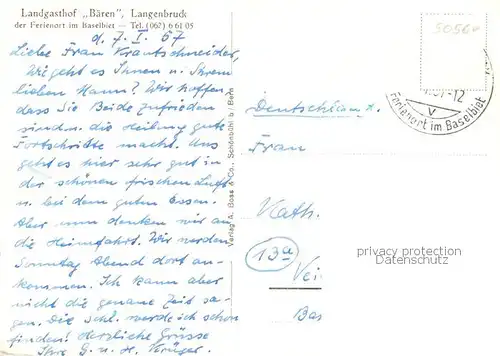 Landgasthof „Bären", Langenbruck
der Ferienort im Baselbiet — Tel. (062) 6 61 05
d. 7. I. 67
Liebe Frau Krautschneider,
Wie geht es Ihnen u. Ihrem
lieben Mann? Wir hoffen,
dass Sie Beide zufrieden
sind u. die Heilung gute
Fortschritte macht. Uns
geht es hier sehr gut in
der schönen frischen Luft
u. bei dem guten Essen.
Aber nun denken wir an
die Heimfahrt. Wir werden
Sonntag Abend dort an-
kommen. Ich kann aber
nicht die genaue Zeit sa-
gen. Die Schl. werde ich schon
finden! Herzliche Grüsse
Ihre G. u. H. Krüger.
Verlag A. Boss & Co., Schönbühl b / Bern
5056
-12
V
Ferienort im Baselbiet
Deutschland
Frau
Kath.
13a
privacy protection
Datenschutz